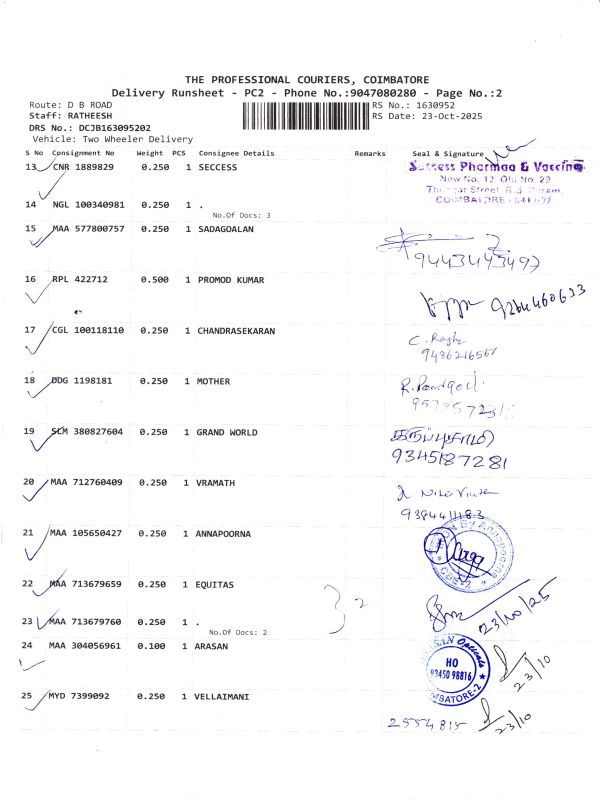 THE PROFESSIONAL COURIERS, COIMBATORE
Delivery Runsheet - PC2 - Phone No.:9047080280 - Page No.:2
Route: D B ROAD
Staff: RATHEESH
DRS No.: DCJB163095202
Vehicle: Two Wheeler Delivery
RS No.: 1630952
RS Date: 23-Oct-2025
S No Consignment No Weight PCS Consignee Details Remarks Seal & Signature
13 CNR 1889829 0.250 1 SECCESS
Success Pharmaa & Vaccine
New No. 12, Old No. 29
COIMBATORE
14 NGL 100340981 0.250 1 .
No.Of Docs: 3
15 MAA 577800757 0.250 1 SADAGOALAN
9443143497
16 RPL 422712 0.500 1 PROMOD KUMAR
9264460633
17 CGL 100118110 0.250 1 CHANDRASEKARAN
9486216567
18 DDG 1198181 0.250 1 MOTHER
19 SLM 380827604 0.250 1 GRAND WORLD
கருப்புசாமி
9345187281
20 MAA 712760409 0.250 1 VRAMATH
21 MAA 105650427 0.250 1 ANNAPOORNA
By Annapoorna
CBE-2
22 MAA 713679659 0.250 1 EQUITAS
2
23/10/25
23 MAA 713679760 0.250 1 .
No.Of Docs: 2
24 MAA 304056961 0.100 1 ARASAN
Opticals
HO
93450 98816
MBATORE-2
23/10
25 MYD 7399092 0.250 1 VELLAIMANI
2554815
23/10